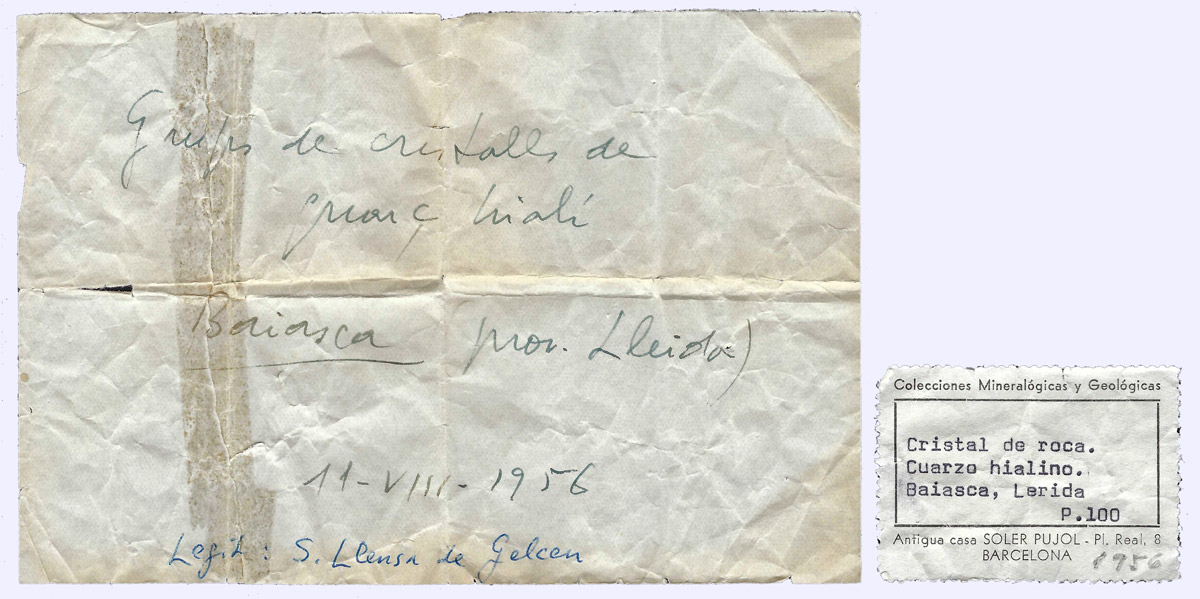 Grups de cristalls de
quarç hialí
Baiasca prov. Lleida)
11-VIII-1956
Legit: S. Llensa de Gelcen
Colecciones Mineralógicas y Geológicas
Cristal de roca.
Cuarzo hialino.
Baiasca, Lerida
P.100
Antigua casa SOLER PUJOL - Pl. Real, 8
BARCELONA
1956